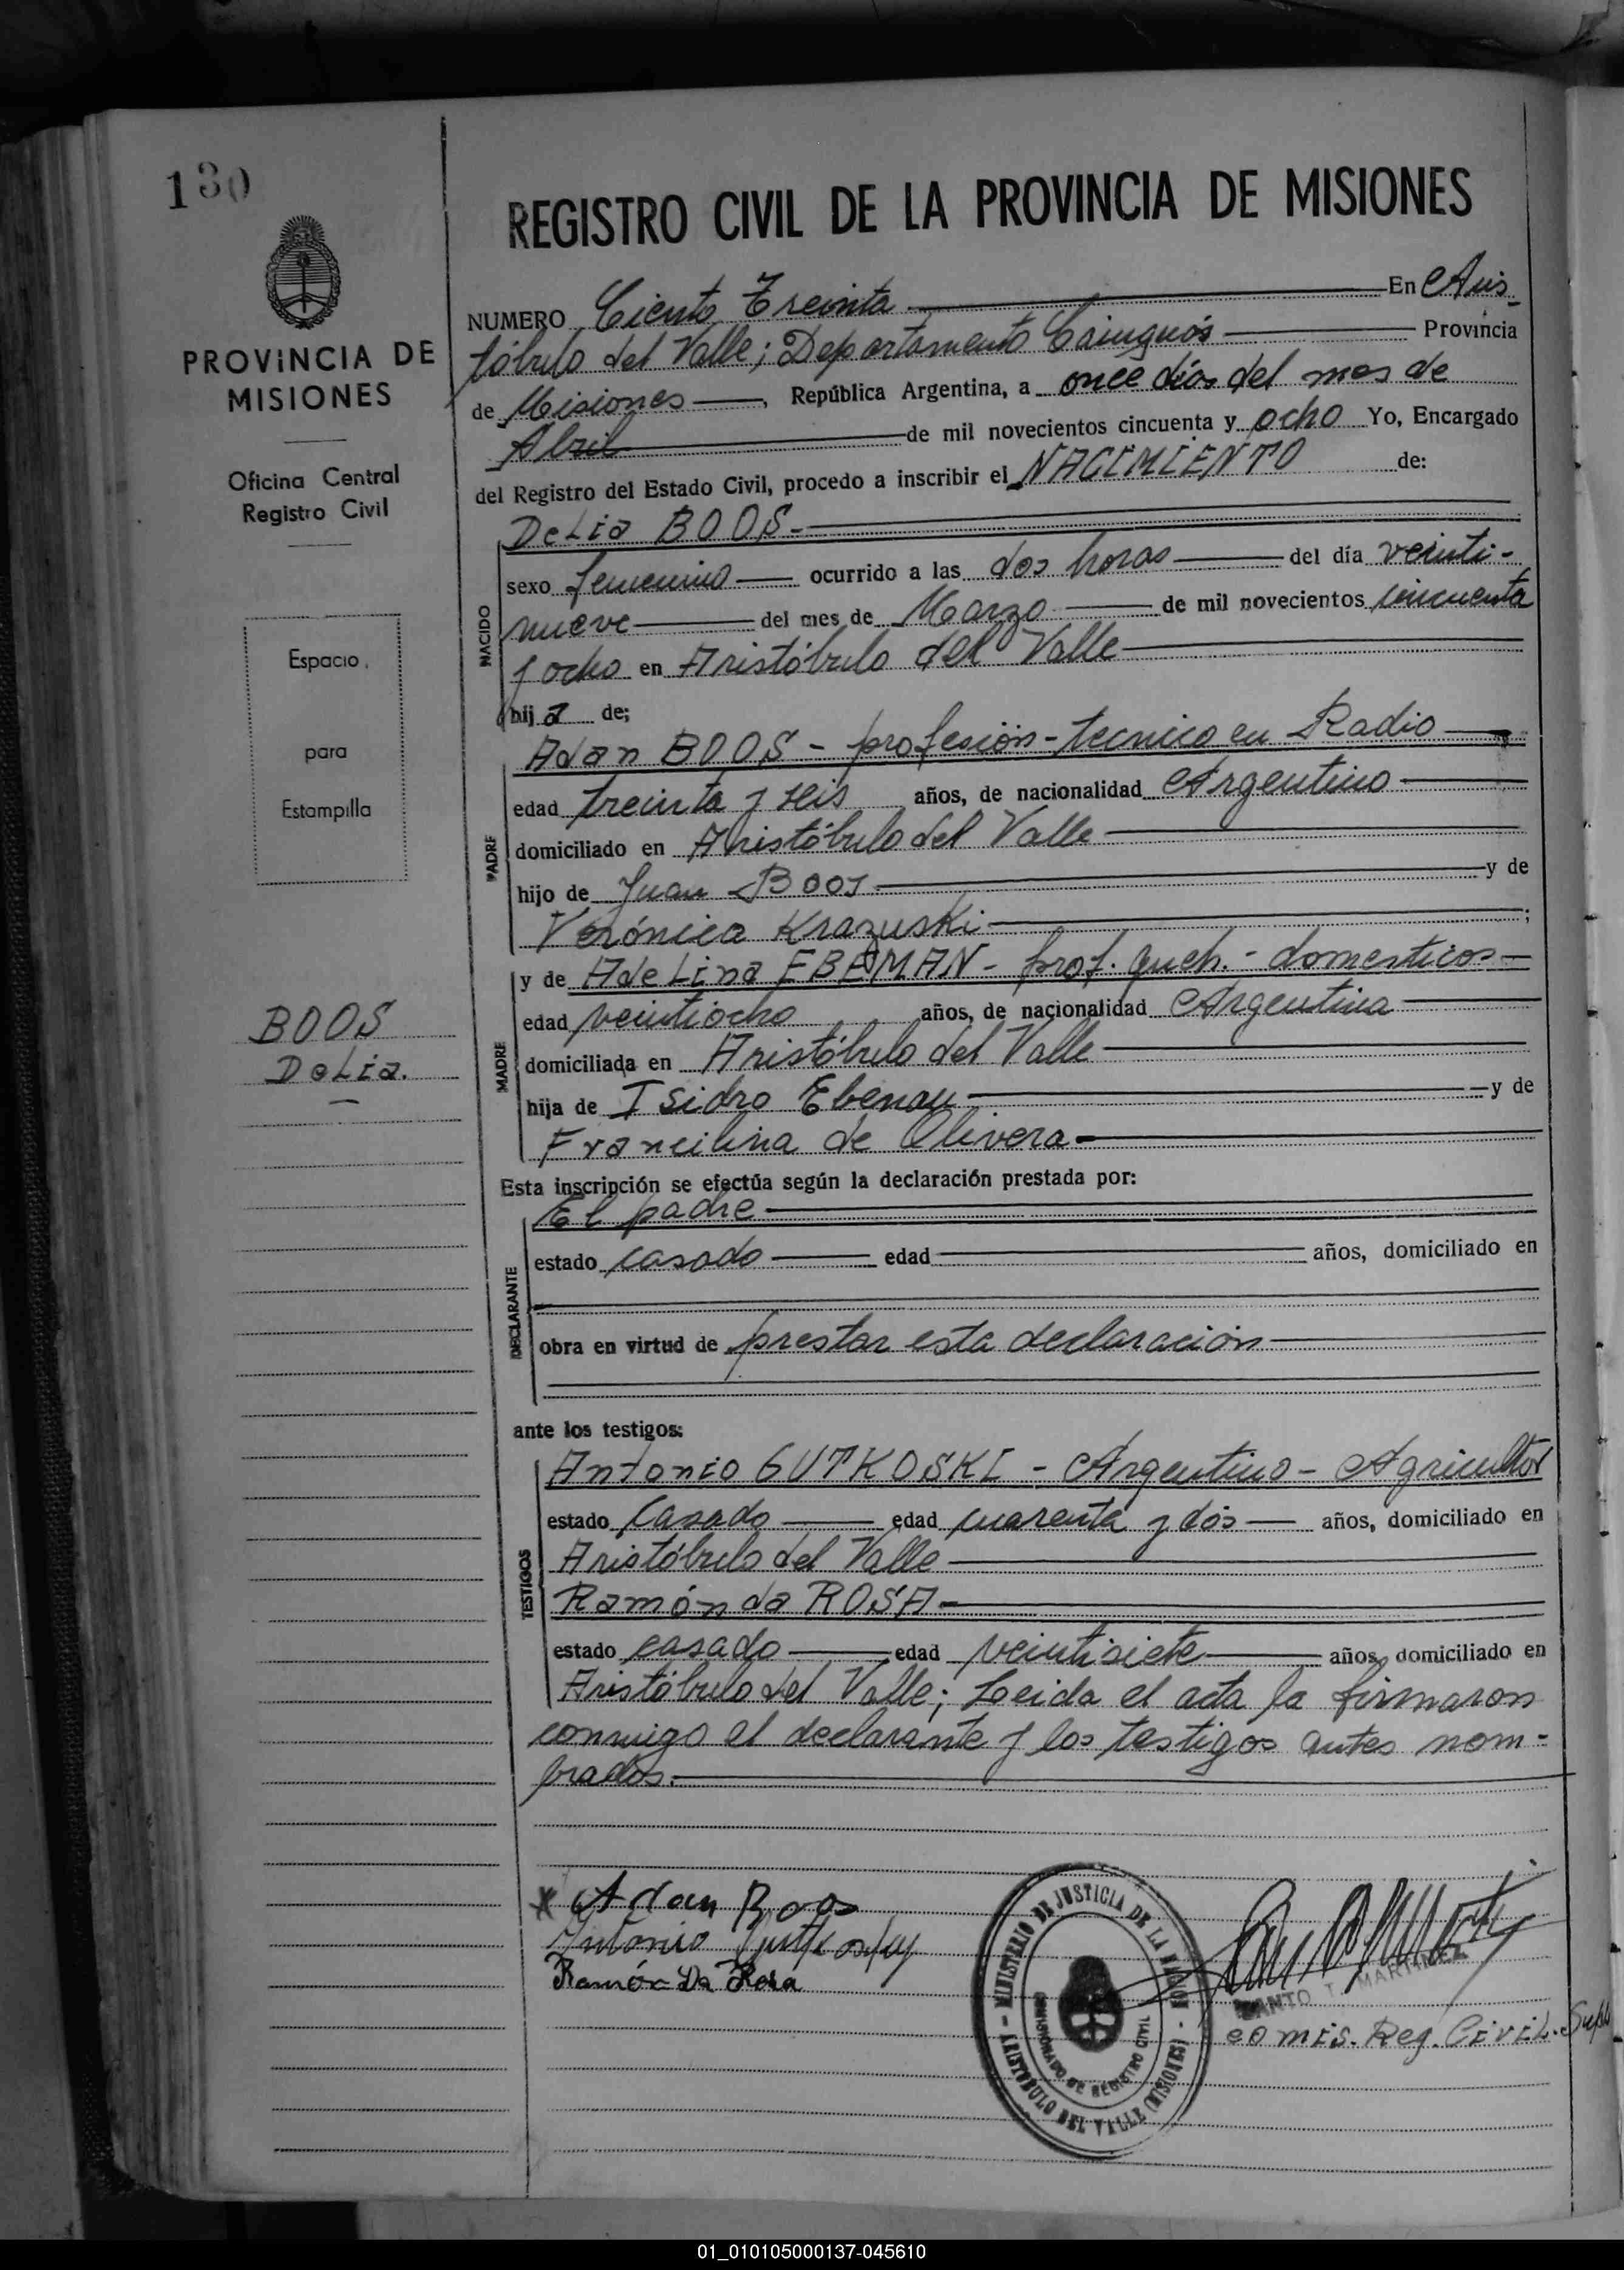 130
REGISTRO CIVIL DE LA PROVINCIA DE MISIONES
PROVINCIA DE
MISIONES
Oficina Central
Registro Civil
Espacio
para
Estampilla
BOOS
Delia.
NUMERO Ciento Treinta En Aris-
tóbulo del Valle; Departamento Cainguás Provincia
de Misiones, República Argentina, a once días del mes de
Abril de mil novecientos cincuenta y ocho Yo, Encargado
del Registro del Estado Civil, procedo a inscribir el NACIMIENTO de:
Delia BOOS
NACIDO
sexo femenino ocurrido a las dos horas del día veinti-
nueve del mes de Marzo de mil novecientos cincuenta
y ocho en Aristóbulo del Valle
hija de;
PADRE
Adan BOOS - profesión - tecnico en Radio
edad treinta y seis años, de nacionalidad Argentino
domiciliado en Aristóbulo del Valle
hijo de Juan Boos y de
Verónica Krazuski;
MADRE
y de Adelina EBEMAN - prof. queh. - domesticos
edad veintiocho años, de nacionalidad Argentina
domiciliada en Aristóbulo del Valle
hija de Isidro Ebenau y de
Francilina de Olivera
Esta inscripción se efectúa según la declaración prestada por:
DECLARANTE
El padre
estado casado edad años, domiciliado en
obra en virtud de prestar esta declaración
ante los testigos:
TESTIGOS
Antonio GUTKOSKI - Argentino - Agricultor
estado Casado edad cuarenta y dos años, domiciliado en
Aristóbulo del Valle
Ramón da ROSA
estado casado edad veintisiete años, domiciliado en
Aristóbulo del Valle; Leida el acta la firmaron
conmigo el declarante y los testigos antes nom-
brados.
x Adan Boos
Antonio Gutkosky
Ramón Da Rosa
MINISTERIO DE JUSTICIA DE LA NACION
COMISIONADO DE REGISTRO CIVIL
ARISTOBULO DEL VALLE (MISIONES)
SANTO T. MARTINEZ
comis. Reg. Civil. Supl
01_010105000137-045610